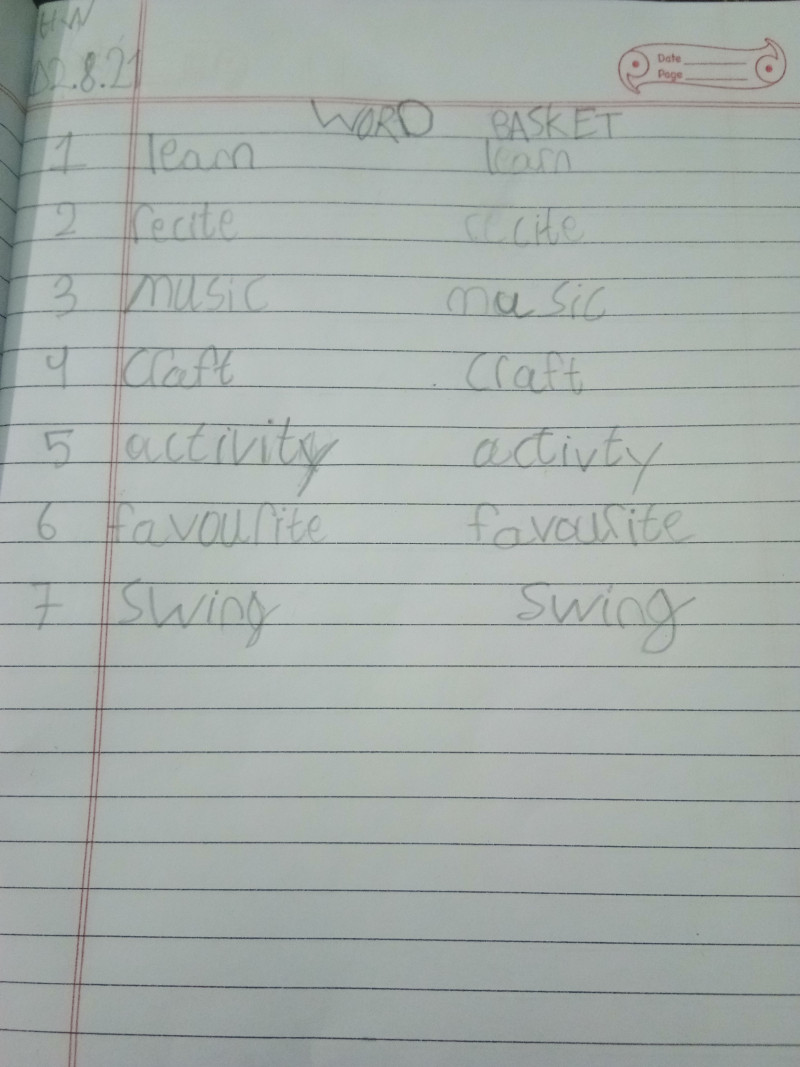 HW
02.8.21
Date
Page
WORD BASKET
1 learn learn
2 recite recite
3 music music
4 craft craft
5 activity activty
6 favourite favourite
7 Swing Swing